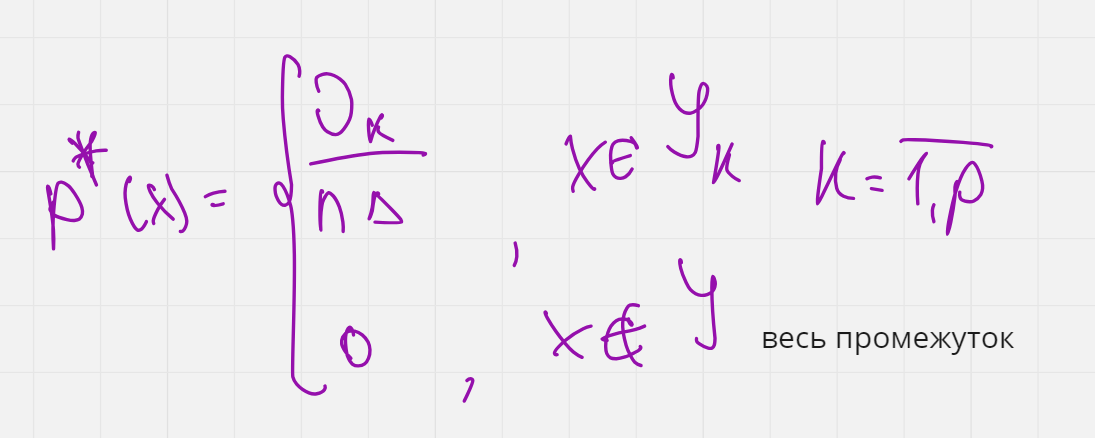 p*(x) = { ϑₖ / nΔ , x ∈ Yₖ k = 1,p
0 , x ∉ Y весь промежуток